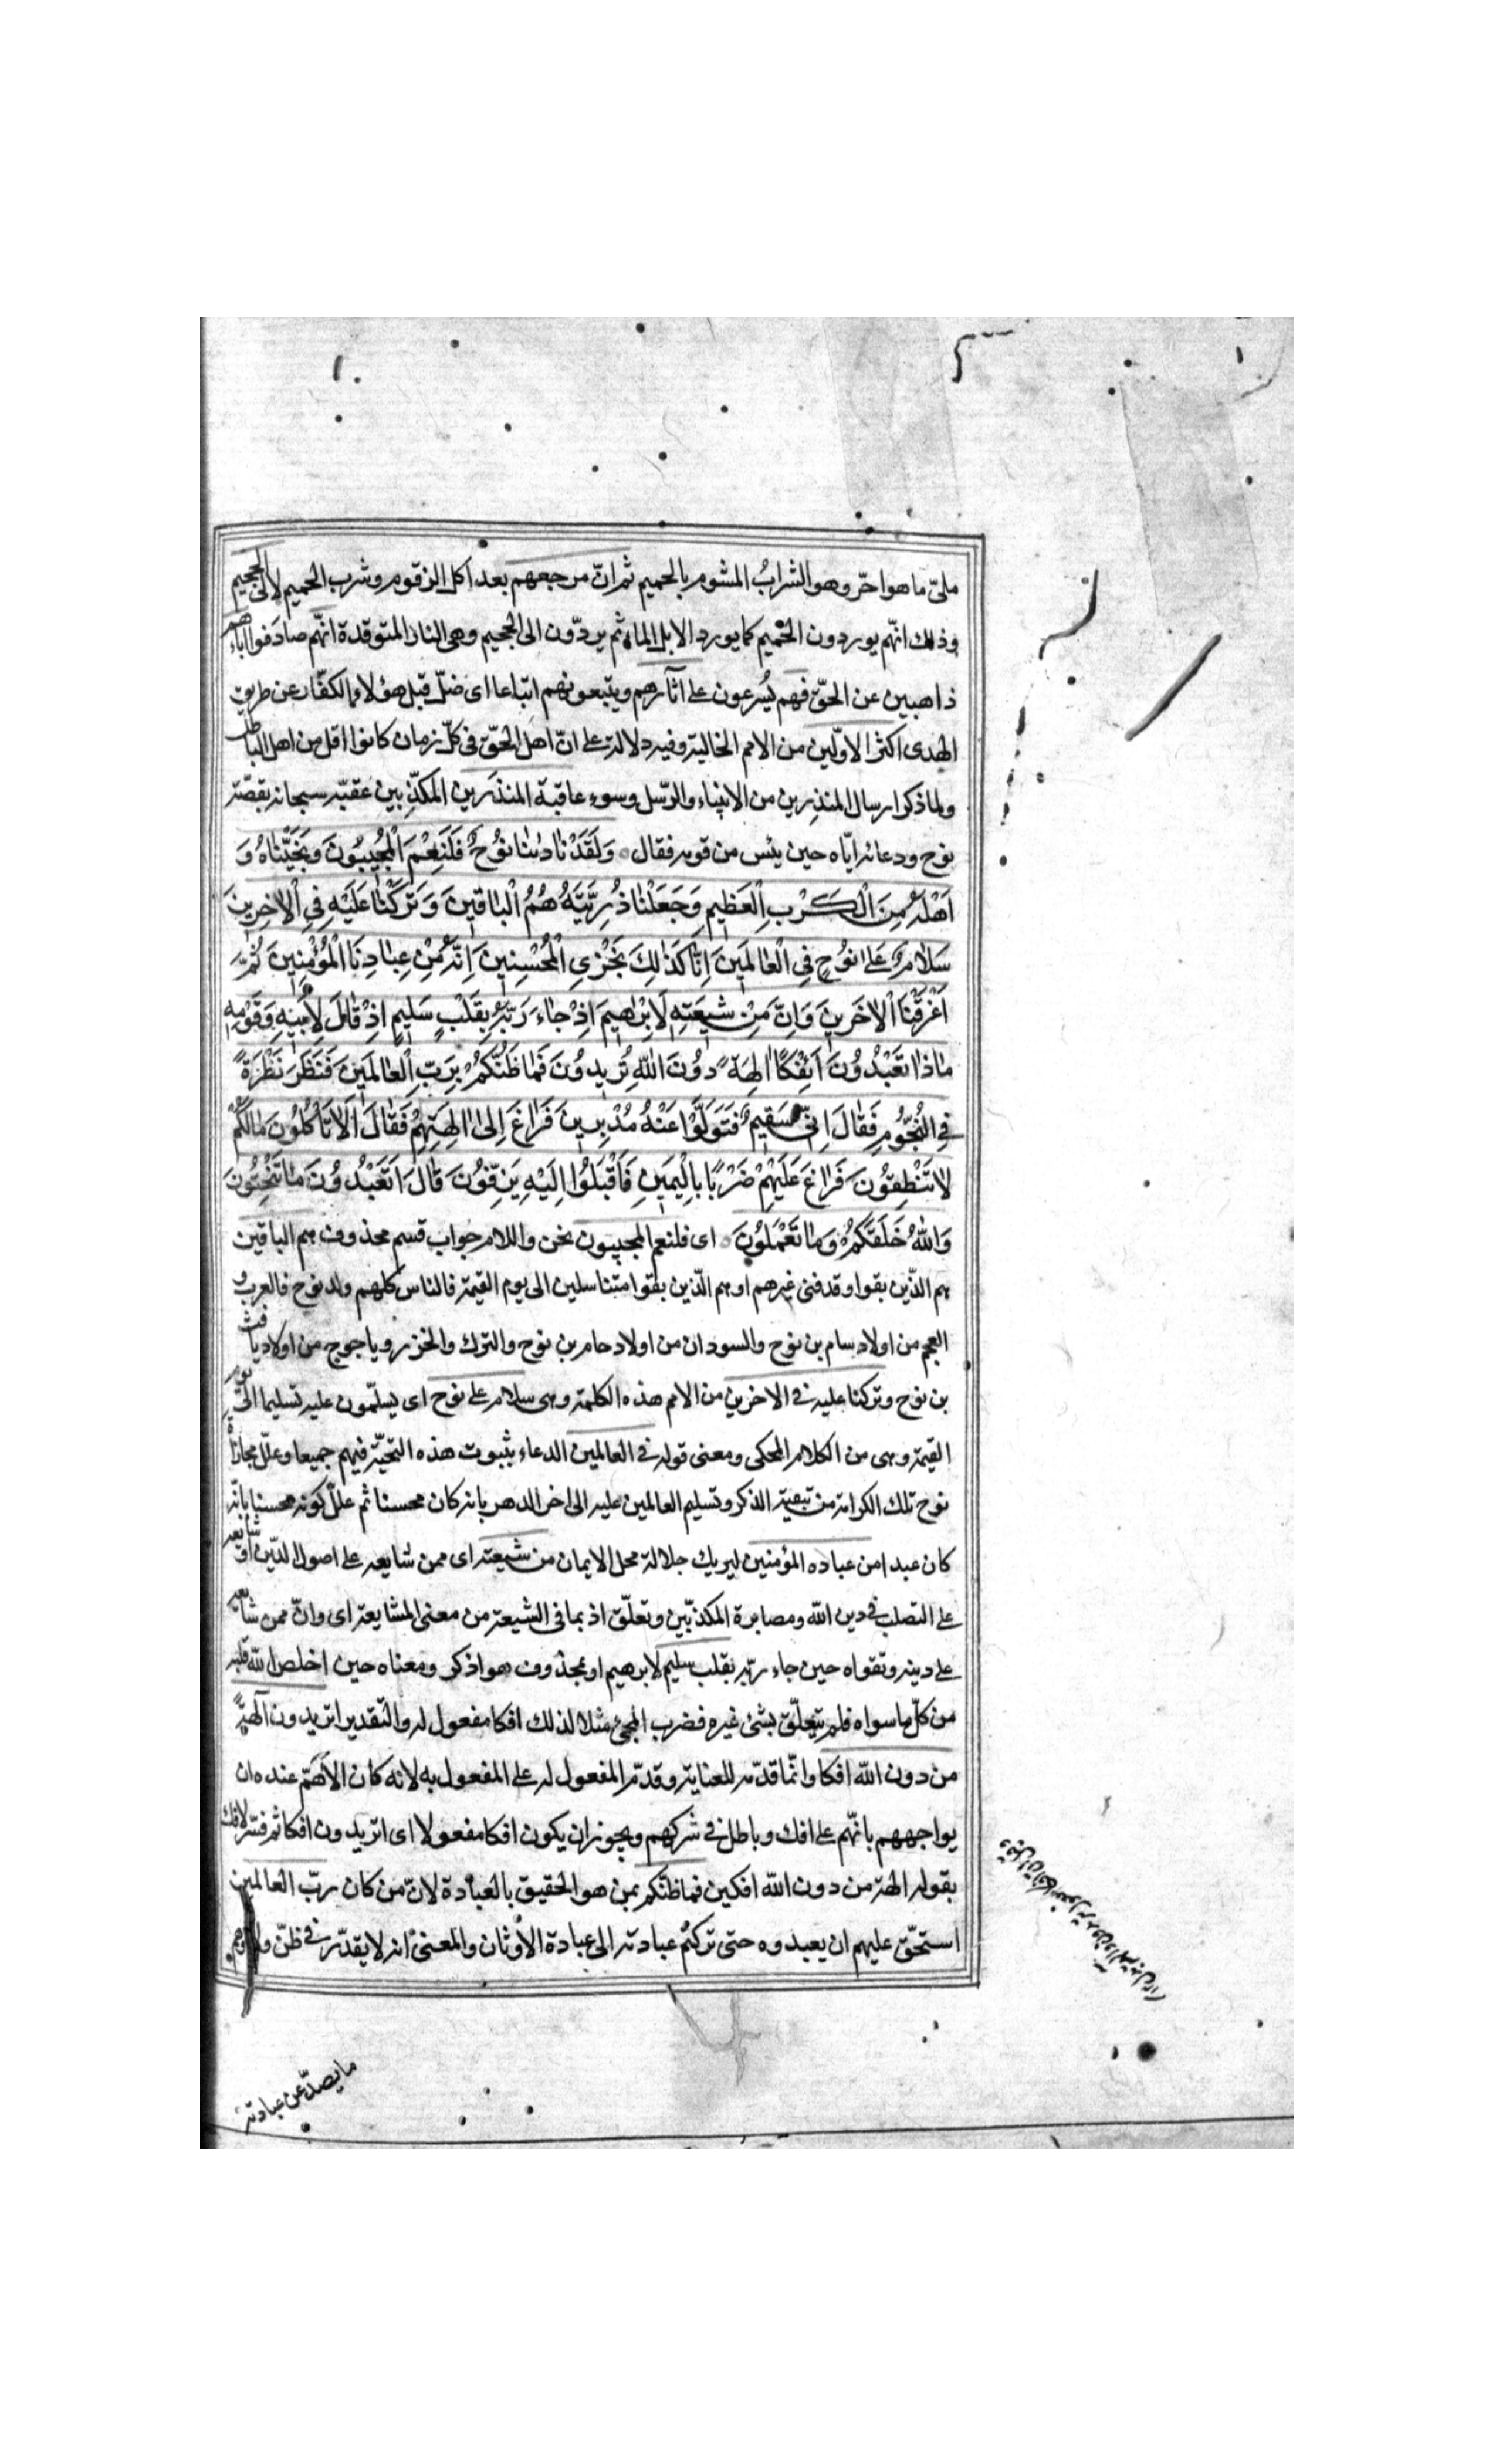 ملیّ ما هو احرّ وهو الشرابُ المشوم بالحميم ثم انّ مرجعهم بعد اكل الزقوم وشرب الحميم لالى الجحيم
وذلك انّهم يوردون الحميم كما يورد الابل الماء ثم يردّون الى الجحيم وهى النار المتوقدة انّهم صادفوا اباءهم
ذاهبين عن الحقّ فهم يُسرعون على آثارهم ويتبعونهم اتباعا اى ضلّ قبل هؤلاء الكفّار عن طريق
الهدى اكثر الاوّلين من الامم الخالية وفيه دلالة على انّ اهل الحقّ فى كلّ زمان كانوا اقل من اهل الباطل
ولما ذكر ارسال المنذِرين من الانبياء والرّسل وسوء عاقبة المنذَرين المكذّبين عقبه سبحانه بقصّة
نوح ودعائه ايّاه حين يئس من قومه فقال وَلَقَدْ نَادٰىنٰا نُوْحٌ فَلَنِعْمَ الْمُجيبُونَ وَنَجَّيْنَاهُ وَ
اَهْلَهُ مِنَ الْكَرْبِ الْعَظِيمِ وَجَعَلْنٰا ذُرِّيَّتَهُ هُمُ الْبٰاقينَ وَ تَرَكْنٰا عَلَيْهِ فِي الْاٰخِرينَ
سَلٰامٌ عَلىٰ نُوْحٍ فِي الْعٰالَمينَ اِنّٰا كَذٰلِكَ نَجْزِي الْمُحْسِنينَ اِنَّهُ مِنْ عِبٰادِنَا الْمُؤْمِنينَ ثُمَّ
اَغْرَقْنَا الْاٰخَرينَ وَاِنَّ مِنْ شيعَتِهِ لَاِبْرٰهيمَ اِذْ جٰاءَ رَبَّهُ بِقَلْبٍ سَليمٍ اِذْ قٰالَ لِاَبيهِ وَقَوْمِهِ
مٰاذٰا تَعْبُدُونَ اَئِفْكًا اٰلِهَةً دُونَ اللّٰهِ تُريدُونَ فَمٰا ظَنُّكُمْ بِرَبِّ الْعٰالَمينَ فَنَظَرَ نَظْرَةً
فِي النُّجُومِ فَقٰالَ اِنّي سَقيمٌ فَتَوَلَّوْا عَنْهُ مُدْبِرينَ فَرٰاغَ اِلىٰ اٰلِهَتِهِمْ فَقٰالَ اَلٰا تَأْكُلُونَ مٰالَكُمْ
لٰا تَنْطِقُونَ فَرٰاغَ عَلَيْهِمْ ضَرْبًا بِالْيَمينِ فَاَقْبَلُوا اِلَيْهِ يَزِفُّونَ قٰالَ اَتَعْبُدُونَ مٰا تَنْحِتُونَ
وَاللّٰهُ خَلَقَكُمْ وَمٰا تَعْمَلُونَ اى فلنعم المجيبون نحن واللام جواب قسم محذوف هم الباقين
هم الّذين بقوا وقد فنى غيرهم او هم الّذين بقوا متناسلين الى يوم القيمة فالناس كلهم ولد نوح فالعرب و
العجم من اولاد سام بن نوح والسودان من اولاد حام بن نوح والترك والخزر وياجوج من اولاد يافث
بن نوح وتركنا عليه فى الاخرين من الامم هذه الكلمة وهى سلام على نوح اى يسلّمون عليه تسليما الى يوم
القيمة وهى من الكلام المحكى ومعنى قوله فى العالمين الدعاء بثبوت هذه التحيّة فيهم جميعا وعلّل مجازاة
نوح تلك الكرامة من تبقية الذكر وتسليم العالمين عليه الى اخر الدهر بانه كان محسنا ثم علّل كونه محسنا بانّه
كان عبدا من عباده المؤمنين ليريك جلالة محل الايمان من شيعته اى ممن شايعه على اصول الدّين او شايعه
على التصلب فى دين الله ومصابرة المكذّبين وتعلّق اذ بما فى الشيعة من معنى المشايعة اى وانّ ممن شايعه
على دينه وتقواه حين جاء ربّه بقلب سليم لابرهيم او بمحذوف هو اذكر ومعناه حين اخلص لله قلبه
من كلّ ما سواه فلم يتعلّق بشئ غيره فضرب المجئ مثلا لذلك افكا مفعول له والتقدير اتريدون آلهةً
من دون الله افكا وانّما قدّم للعناية وقدّم المفعول له على المفعول به لانه كان الأهَمّ عنده ان
يواجههم بانّهم على افك وباطل فى شركهم ويجوز ان يكون افكا مفعولا اى اتريدون افكا ثم فسّر الافك
بقوله الهة من دون الله افكين فما ظنّكم بمن هو الحقيق بالعبادة لانّ من كان ربّ العالمين
استحقّ عليهم ان يعبدوه حتى تركتم عبادته الى عبادة الأوثان والمعنى انه لا يقدّر فى ظنّ ولا وهم
ما يصدّ عن عبادته